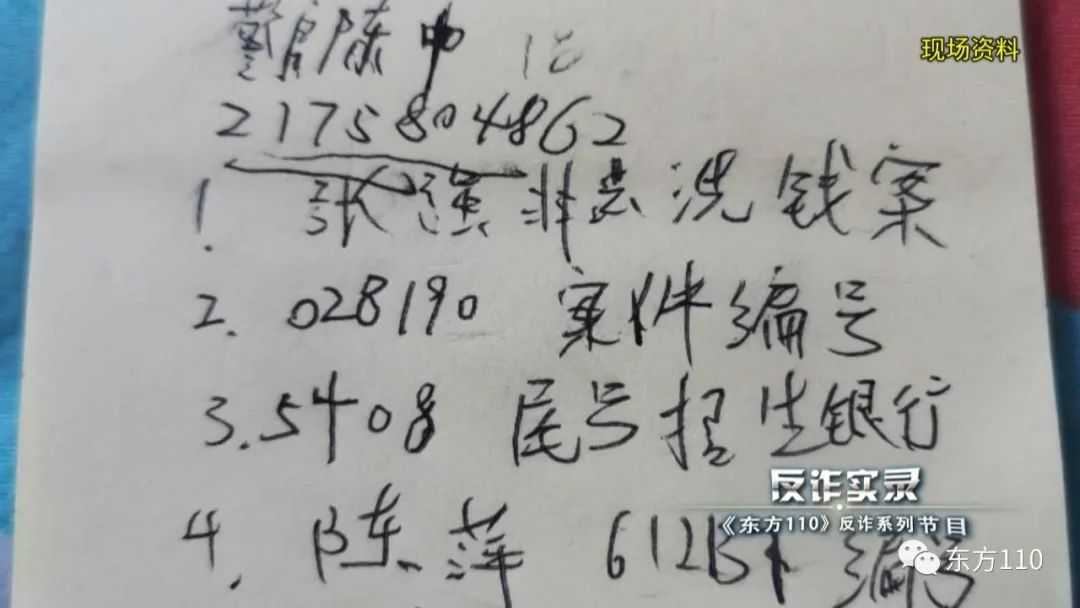 警官陈
现场资料
2175804862
1. 张强非法洗钱案
2. 028190 案件编号
3. 5408 尾号招生银行
反诈实录
《东方110》反诈系列节目
4. 陈萍 612 编号
东方110